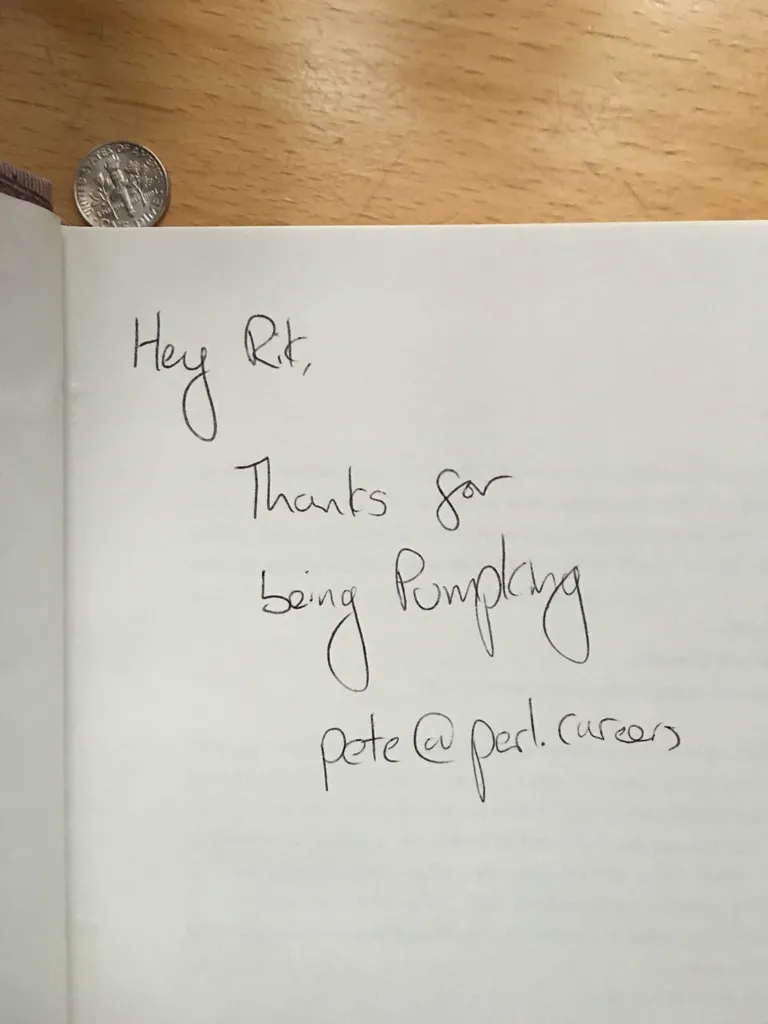 Hey Rik,
Thanks for
being Pumpking
pete@perl.careers